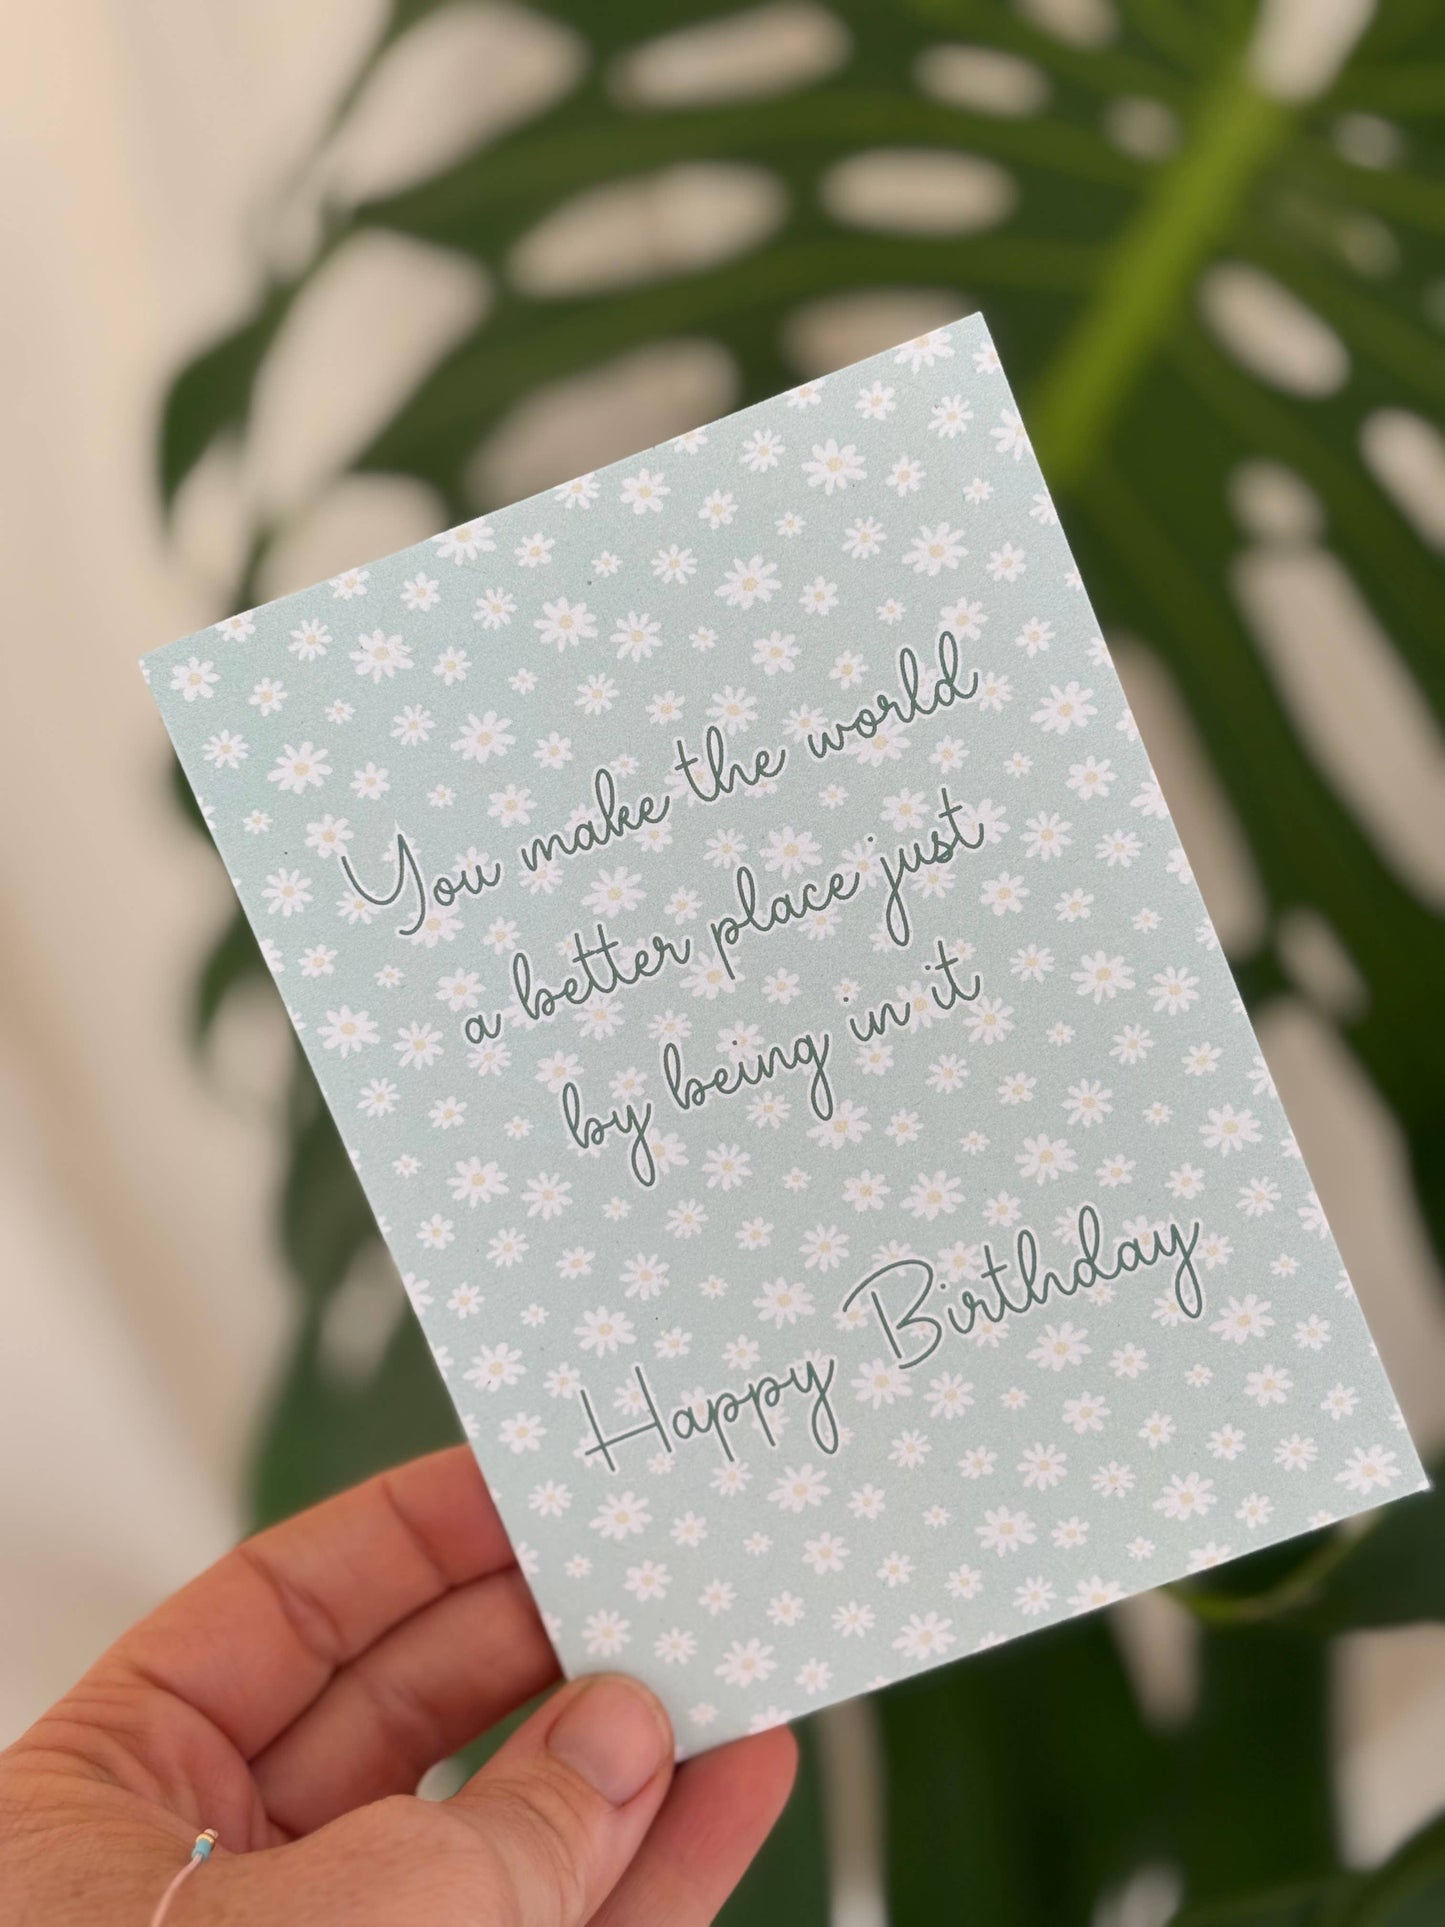 You make the world
a better place just
by being in it
Happy Birthday